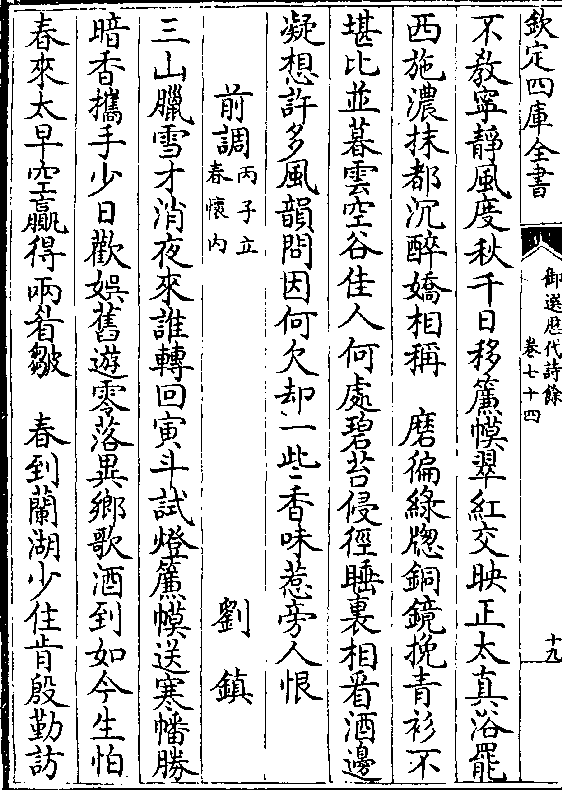 欽定四庫全書
御選歴代詩餘
卷七十四
十九
不教寧靜風度秋千日移簾幙翠紅交映正太真浴罷
西施濃抹都沉醉嬌相稱　磨徧綠牕銅鏡挽青衫不
堪比並暮雲空谷佳人何處碧苔侵徑睡裏相看酒邊
凝想許多風韻問因何欠却一些香味惹旁人恨
前調丙子立春懷内　劉鎮
三山臘雪才消夜來誰轉回寅斗試燈簾幙送寒幡勝
暗香攜手少日歡娱舊遊零落異鄉歌酒到如今生怕
春來太早空贏得兩眉皺　春到蘭湖少住肯殷勤訪